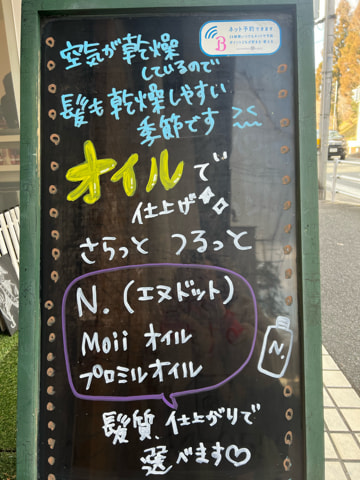 ネット予約できます
B
空気が乾燥
しているので
髪も乾燥しやすい
季節です
オイルで
仕上げ
さらっと つるっと
N. (エヌドット)
Moii オイル
プロミルオイル
N.
髪質、仕上がりで
選べます♡